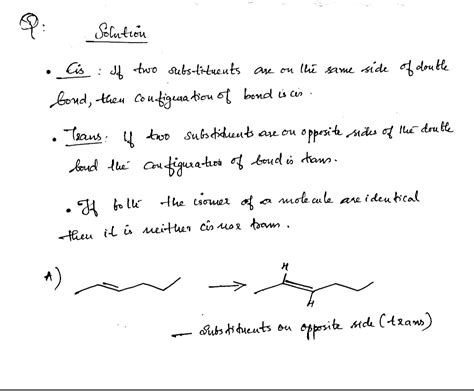 Q:
Solution
• Cis : If two substituents are on the same side of double
bond, then configuration of bond is cis.
• Trans: If two substituents are on opposite sides of the double
bond the configuration of bond is trans.
• If both the isomer of a molecule are identical
then it is neither cis nor trans.
A)
H
H
— substituents on opposite side (trans)